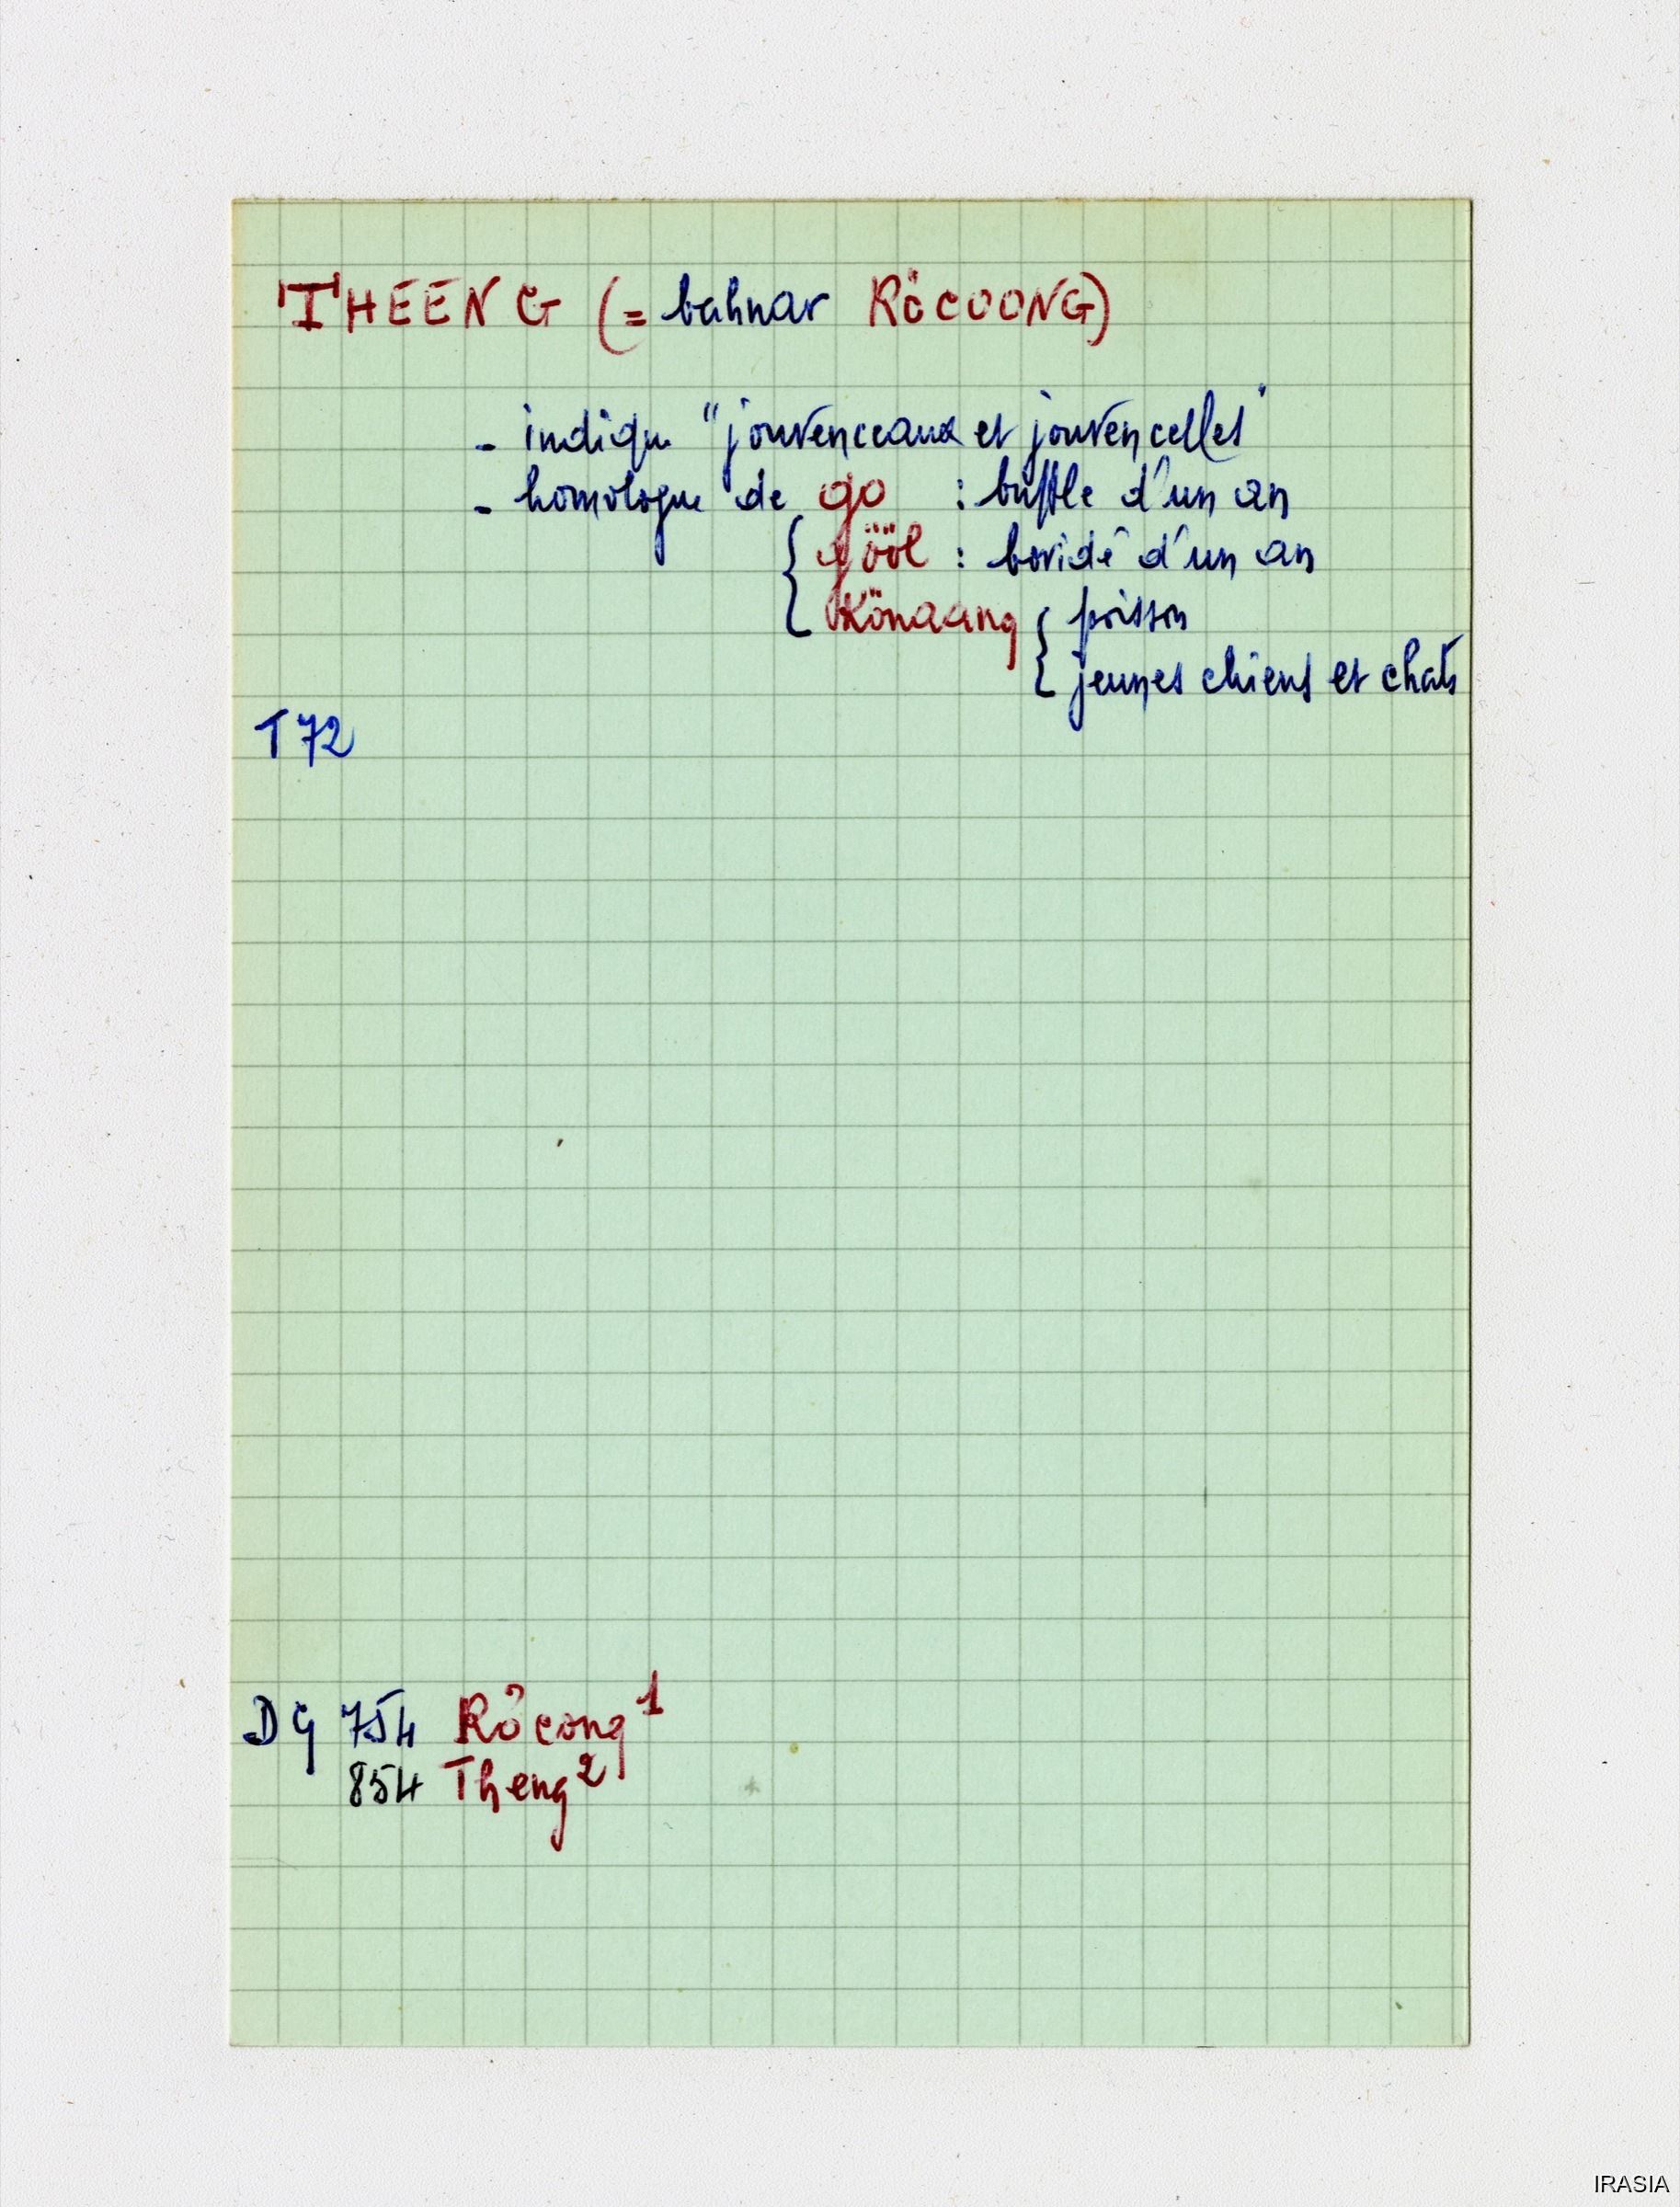 THEENG (= bahnar RÖCOONG)
- indique "jouvenceaux et jouvencelles"
- homologue de go : buffle d'un an
{ gööl : bovidé d'un an
Könaang { poisson
jeunes chiens et chats
T 72
DG 754 Röcong¹
854 Theng²
IRASIA